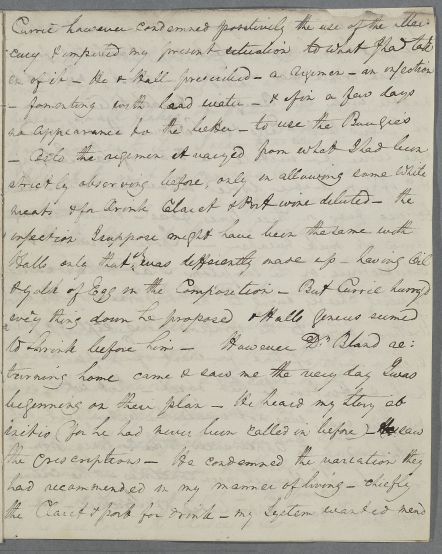 Currie however condemned positively the use of the Mer-
cury & imputed my present situation to what I had tak
en of it - He & Hall prescribed - a regimen - an injection
- fomenting with lead water - & if in a few days
no appearance for the better - to use the Bougies
- the regimen it varyed from what I had been
strictly observing before, only in allowing some white
meats & for Drink Claret & Port wine diluted - the
injection I suppose might have been the same with
Halls only that it was differently made up - having Oil
& yolk of Egg in the Composition - But Currie hurry'd
every thing down he proposed & Halls genius seemed
to shrink before him - However Dr. Bland re:
turning home came & saw me the very day I was
beginning on their plan - He heard my Story ab
initio (for he had never been called in before) saw
the prescriptions - He condemned the variation they
had recommended in my manner of living - chiefly
the Claret & port for drink - my System wanted mend